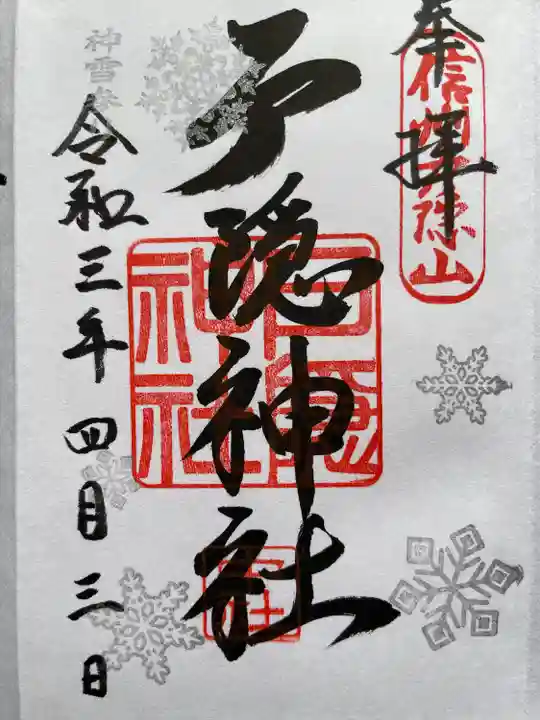 奉拝
信州戸隠山
戸隠神社
戸隠神社
令和三年四月三日